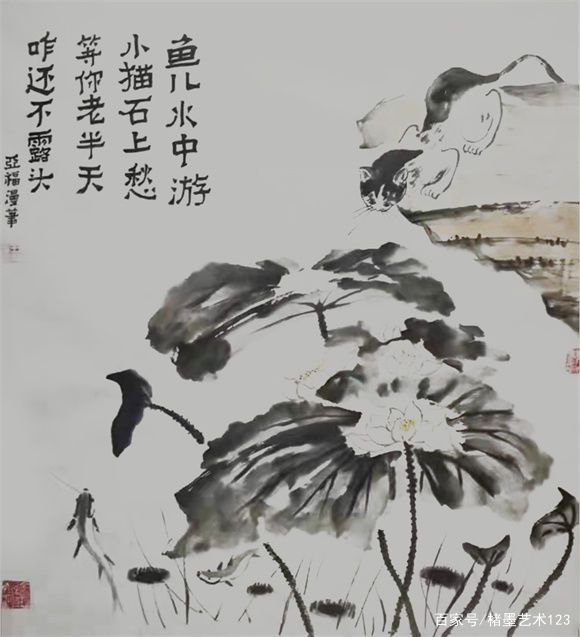 鱼儿水中游
小猫石上愁
等你老半天
咋还不露头
亞福漫筆
百家号/楮墨艺术123